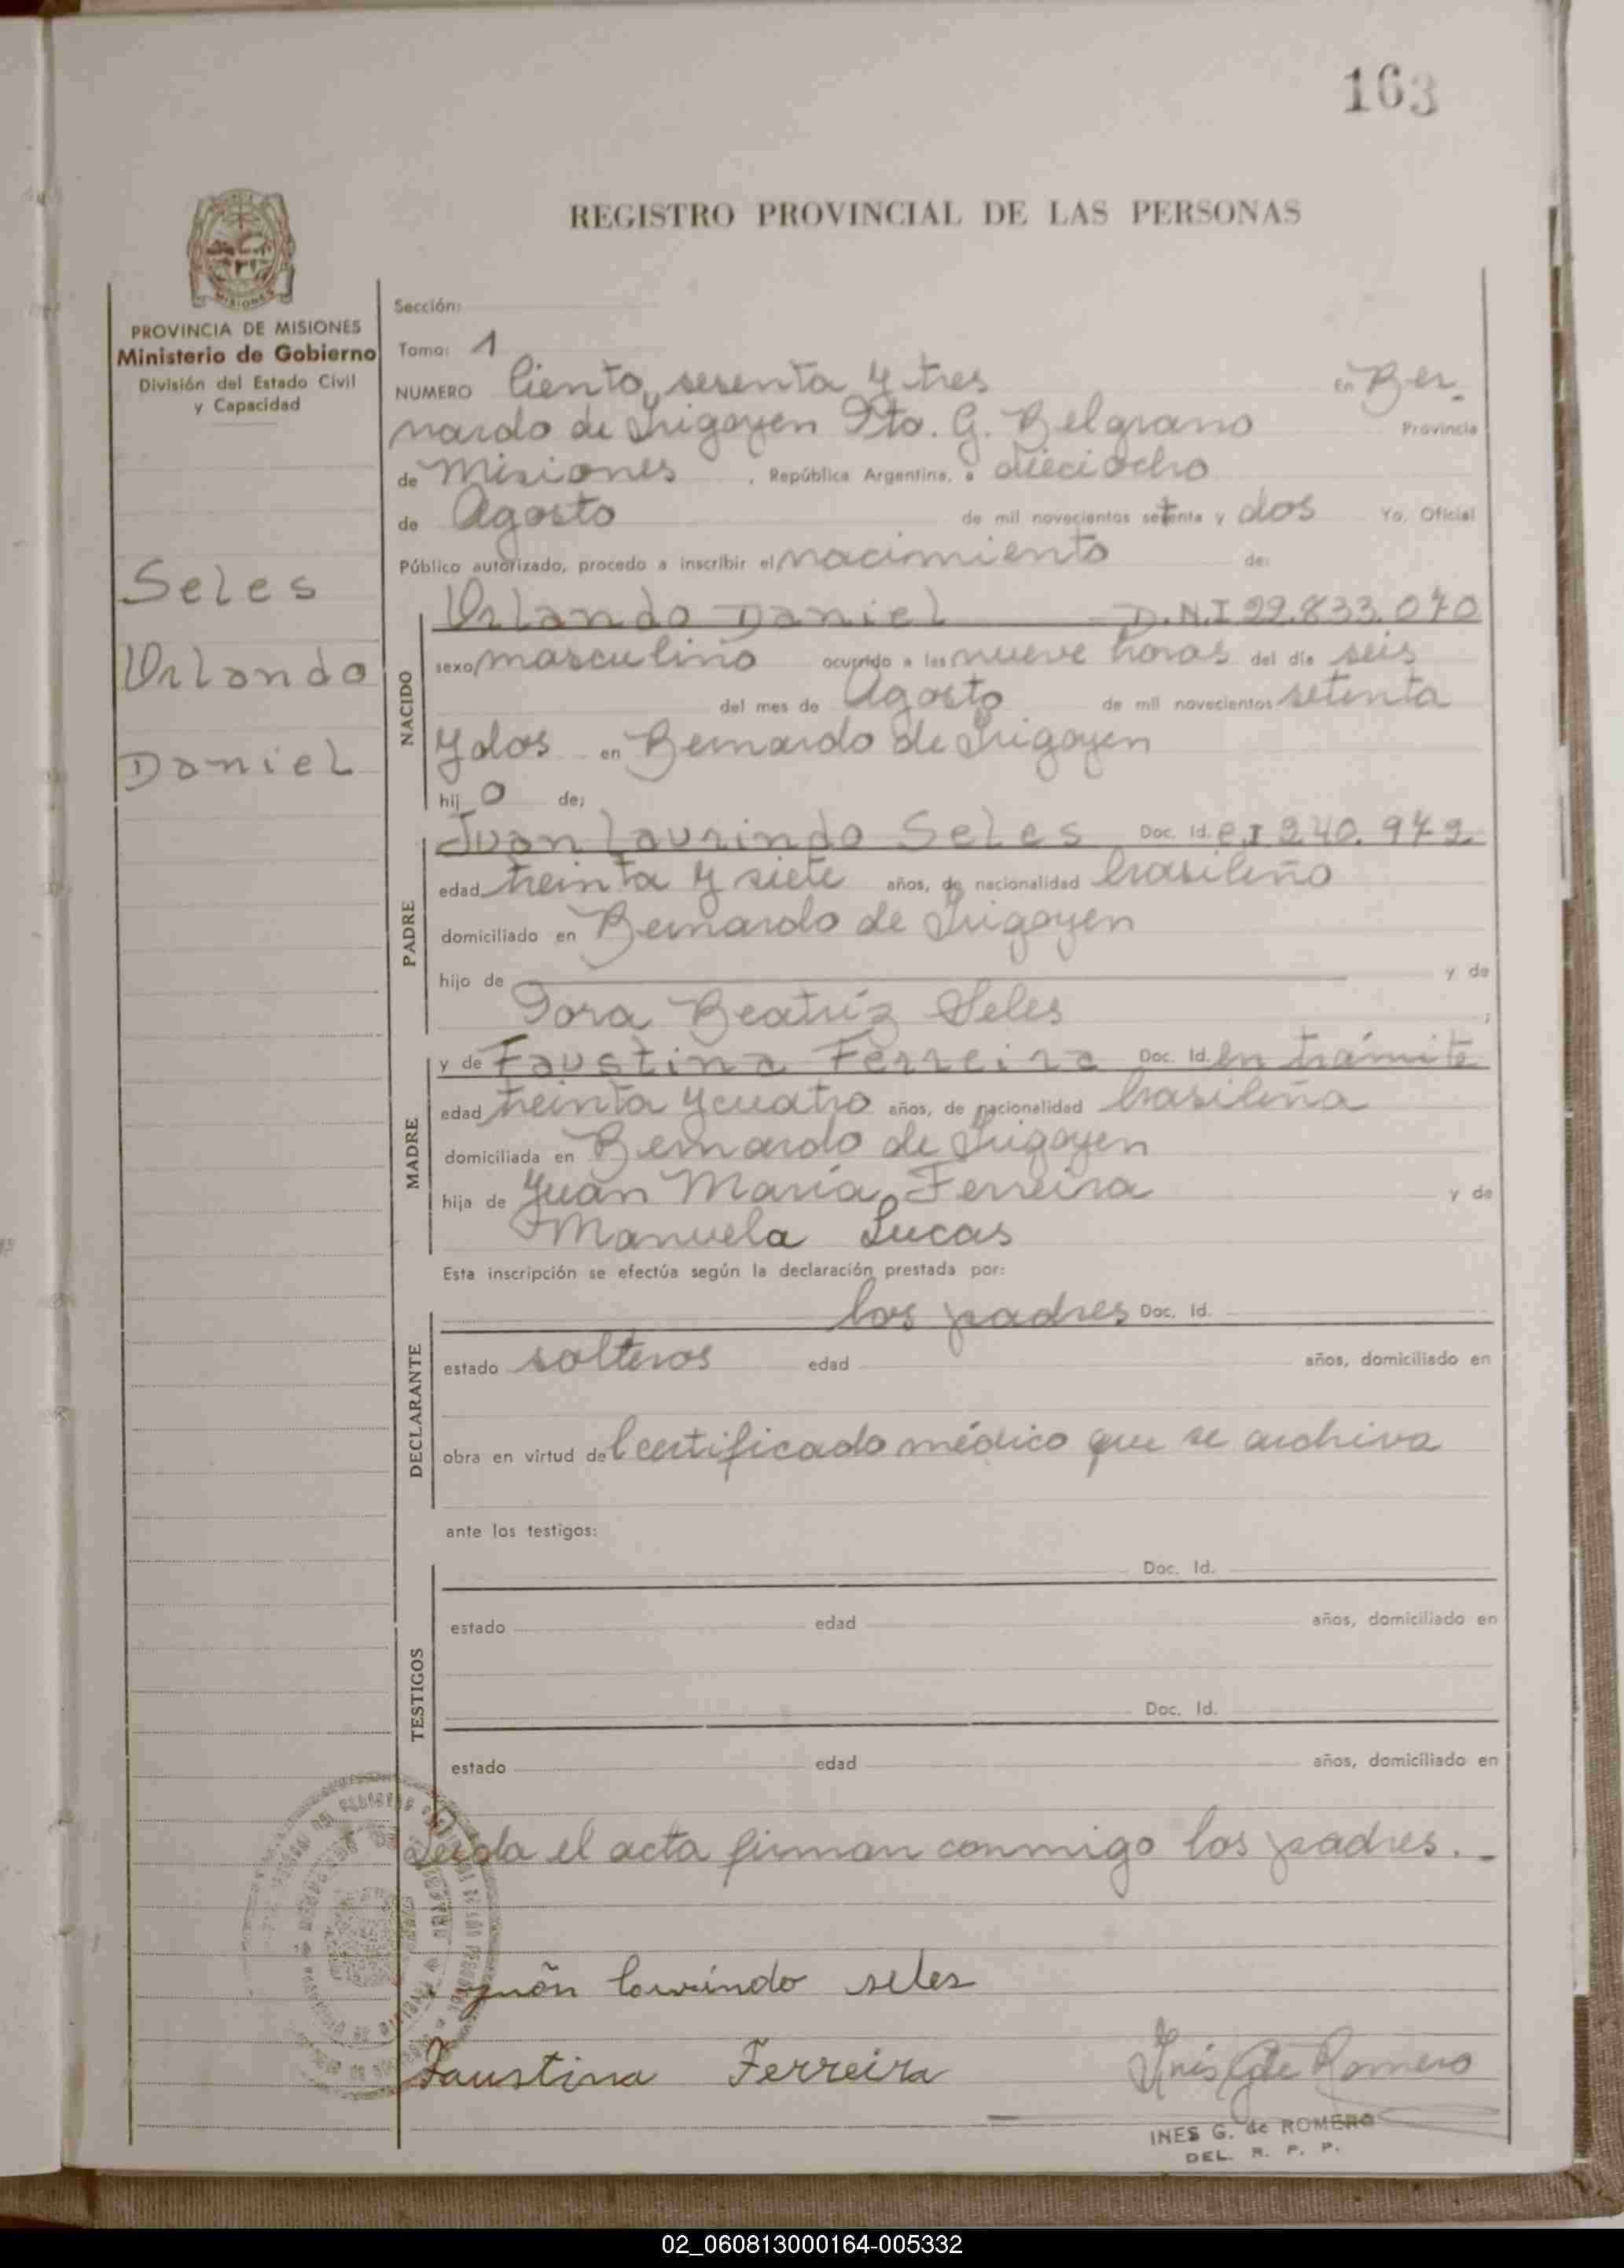 163
REGISTRO PROVINCIAL DE LAS PERSONAS
MISIONES
PROVINCIA DE MISIONES
Ministerio de Gobierno
División del Estado Civil
y Capacidad
Seles
Orlando
Daniel
Sección:
Tomo: 1
NUMERO Ciento sesenta y tres En Ber-
nardo de Irigoyen Dto. G. Belgrano Provincia
de Misiones, República Argentina, a dieciocho
de Agosto de mil novecientos setenta y dos Yo, Oficial
Público autorizado, procedo a inscribir el nacimiento de:
NACIDO
Orlando Daniel D.N.I 22.833.070
sexo masculino ocurrido a las nueve horas del día seis
del mes de Agosto de mil novecientos setenta
y dos en Bernardo de Irigoyen
hij o de;
PADRE
Juan Laurindo Seles Doc. Id. C.I 240.972
edad treinta y siete años, de nacionalidad brasileño
domiciliado en Bernardo de Irigoyen
hijo de y de
Dora Beatríz Seles;
MADRE
y de Faustina Ferreira Doc. Id. en trámite
edad treinta y cuatro años, de nacionalidad brasileña
domiciliada en Bernardo de Irigoyen
hija de Juan María Ferreira y de
Manuela Lucas
Esta inscripción se efectúa según la declaración prestada por:
DECLARANTE
los padres Doc. Id.
estado solteros edad años, domiciliado en
obra en virtud del certificado médico que se archiva
ante los testigos:
TESTIGOS
Doc. Id.
estado edad años, domiciliado en
Doc. Id.
estado edad años, domiciliado en
Leída el acta firman conmigo los padres.-
juãn lourindo seles
Faustina Ferreira
Inés G de Romero
INES G. de ROMERO
DEL. R. P. P.
02_060813000164-005332